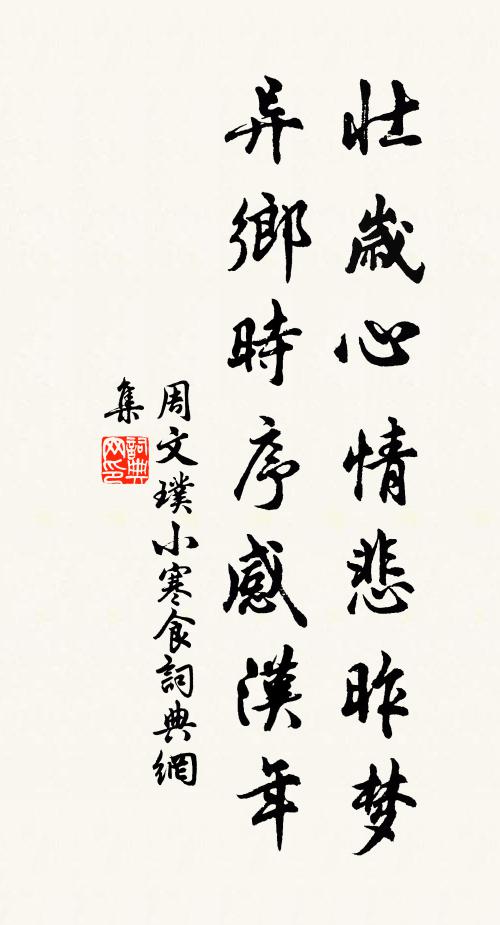 壮歳心情悲昨梦
异鄉時序感漢年
周文璞小寒食詞典網
集
詞典
网印